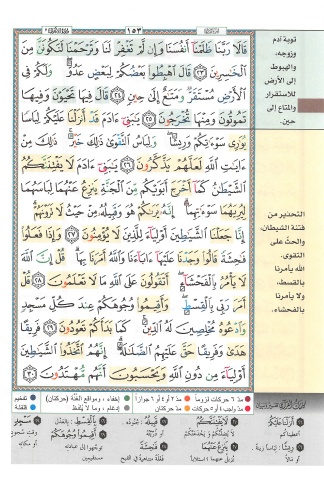 ١٥٣
قَالَا رَبَّنَا ظَلَمْنَا أَنفُسَنَا وَإِن لَّمْ تَغْفِرْ لَنَا وَتَرْحَمْنَا لَنَكُونَنَّ مِنَ
الْخَٰسِرِينَ ٢٣ قَالَ اهْبِطُوا۟ بَعْضُكُمْ لِبَعْضٍ عَدُوٌّ وَلَكُمْ فِى
الْأَرْضِ مُسْتَقَرٌّ وَمَتَٰعٌ إِلَىٰ حِينٍ ٢٤ قَالَ فِيهَا تَحْيَوْنَ وَفِيهَا
تَمُوتُونَ وَمِنْهَا تُخْرَجُونَ ٢٥ يَٰبَنِىٓ ءَادَمَ قَدْ أَنزَلْنَا عَلَيْكُمْ لِبَاسًا
يُوَٰرِى سَوْءَٰتِكُمْ وَرِيشًا وَلِبَاسُ التَّقْوَىٰ ذَٰلِكَ خَيْرٌ ذَٰلِكَ مِنْ
ءَايَٰتِ اللَّهِ لَعَلَّهُمْ يَذَّكَّرُونَ ٢٦ يَٰبَنِىٓ ءَادَمَ لَا يَفْتِنَنَّكُمُ
الشَّيْطَٰنُ كَمَآ أَخْرَجَ أَبَوَيْكُم مِّنَ الْجَنَّةِ يَنزِعُ عَنْهُمَا لِبَاسَهُمَا
لِيُرِيَهُمَا سَوْءَٰتِهِمَآ إِنَّهُۥ يَرَىٰكُمْ هُوَ وَقَبِيلُهُۥ مِنْ حَيْثُ لَا تَرَوْنَهُمْ
إِنَّا جَعَلْنَا الشَّيَٰطِينَ أَوْلِيَآءَ لِلَّذِينَ لَا يُؤْمِنُونَ ٢٧ وَإِذَا فَعَلُوا۟
فَٰحِشَةً قَالُوا۟ وَجَدْنَا عَلَيْهَآ ءَابَآءَنَا وَاللَّهُ أَمَرَنَا بِهَا قُلْ إِنَّ اللَّهَ
لَا يَأْمُرُ بِالْفَحْشَآءِ أَتَقُولُونَ عَلَى اللَّهِ مَا لَا تَعْلَمُونَ ٢٨ قُلْ
أَمَرَ رَبِّى بِالْقِسْطِ وَأَقِيمُوا۟ وُجُوهَكُمْ عِندَ كُلِّ مَسْجِدٍ
وَادْعُوهُ مُخْلِصِينَ لَهُ الدِّينَ كَمَا بَدَأَكُمْ تَعُودُونَ ٢٩ فَرِيقًا
هَدَىٰ وَفَرِيقًا حَقَّ عَلَيْهِمُ الضَّلَٰلَةُ إِنَّهُمُ اتَّخَذُوا۟ الشَّيَٰطِينَ
أَوْلِيَآءَ مِن دُونِ اللَّهِ وَيَحْسَبُونَ أَنَّهُم مُّهْتَدُونَ ٣٠
توبة آدم
وزوجه،
والهبوط
إلى الأرض
للاستقرار
والمتاع إلى
حين.
التحذير من
فتنة الشيطان،
والحث على
التقوى.
الله يأمرنا
بالقسط،
ولا يأمرنا
بالفحشاء.
مد ٦ حركات لزوماً
مد ٢ أو ٤ أو ٦ جوازاً
إخفاء، ومواقع الغنة (حركتان)
تفخيم
مد واجب ٤ أو ٥ حركات
مد حركتان
إدغام، وما لا يلفظ
قلقلة